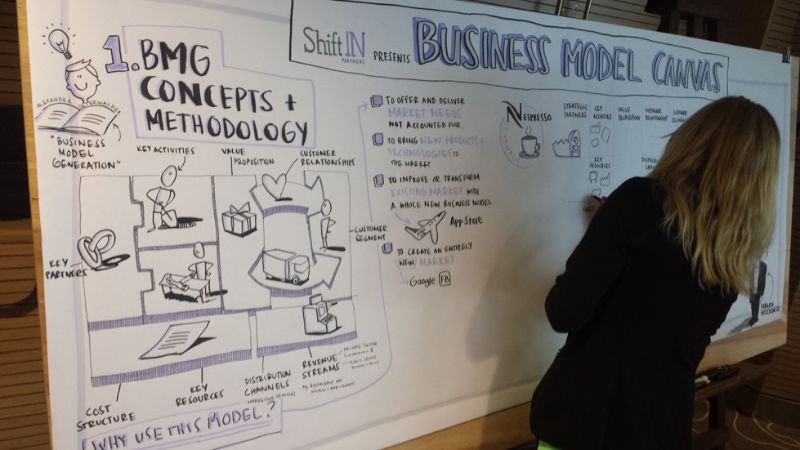 ShiftIN
PARTNERS
PRESENTS
BUSINESS MODEL CANVAS
1. BMG
CONCEPTS +
METHODOLOGY
ALEXANDER
"BUSINESS
MODEL
GENERATION"
KEY ACTIVITIES
VALUE
PROPOSITION
CUSTOMER
RELATIONSHIPS
KEY
PARTNERS
CUSTOMER
SEGMENT
COST
STRUCTURE
KEY
RESOURCES
DISTRIBUTION
CHANNELS
REVENUE
STREAMS
WHY USE THIS MODEL?
TO OFFER AND DELIVER
MARKET NEEDS
NOT ACCOUNTED FOR
TO BRING NEW PRODUCTS +
TECHNOLOGIES TO
THE MARKET
TO IMPROVE OR TRANSFORM
EXISTING MARKET WITH
A WHOLE NEW BUSINESS MODEL
App Store
TO CREATE AN ENTIRELY
NEW MARKET
Google FB
NESPRESSO
STRATEGIC
PARTNERS
KEY
ACTIVITIES
VALUE
PROPOSITION
CUSTOMER
RELATIONSHIP
KEY
RESOURCES